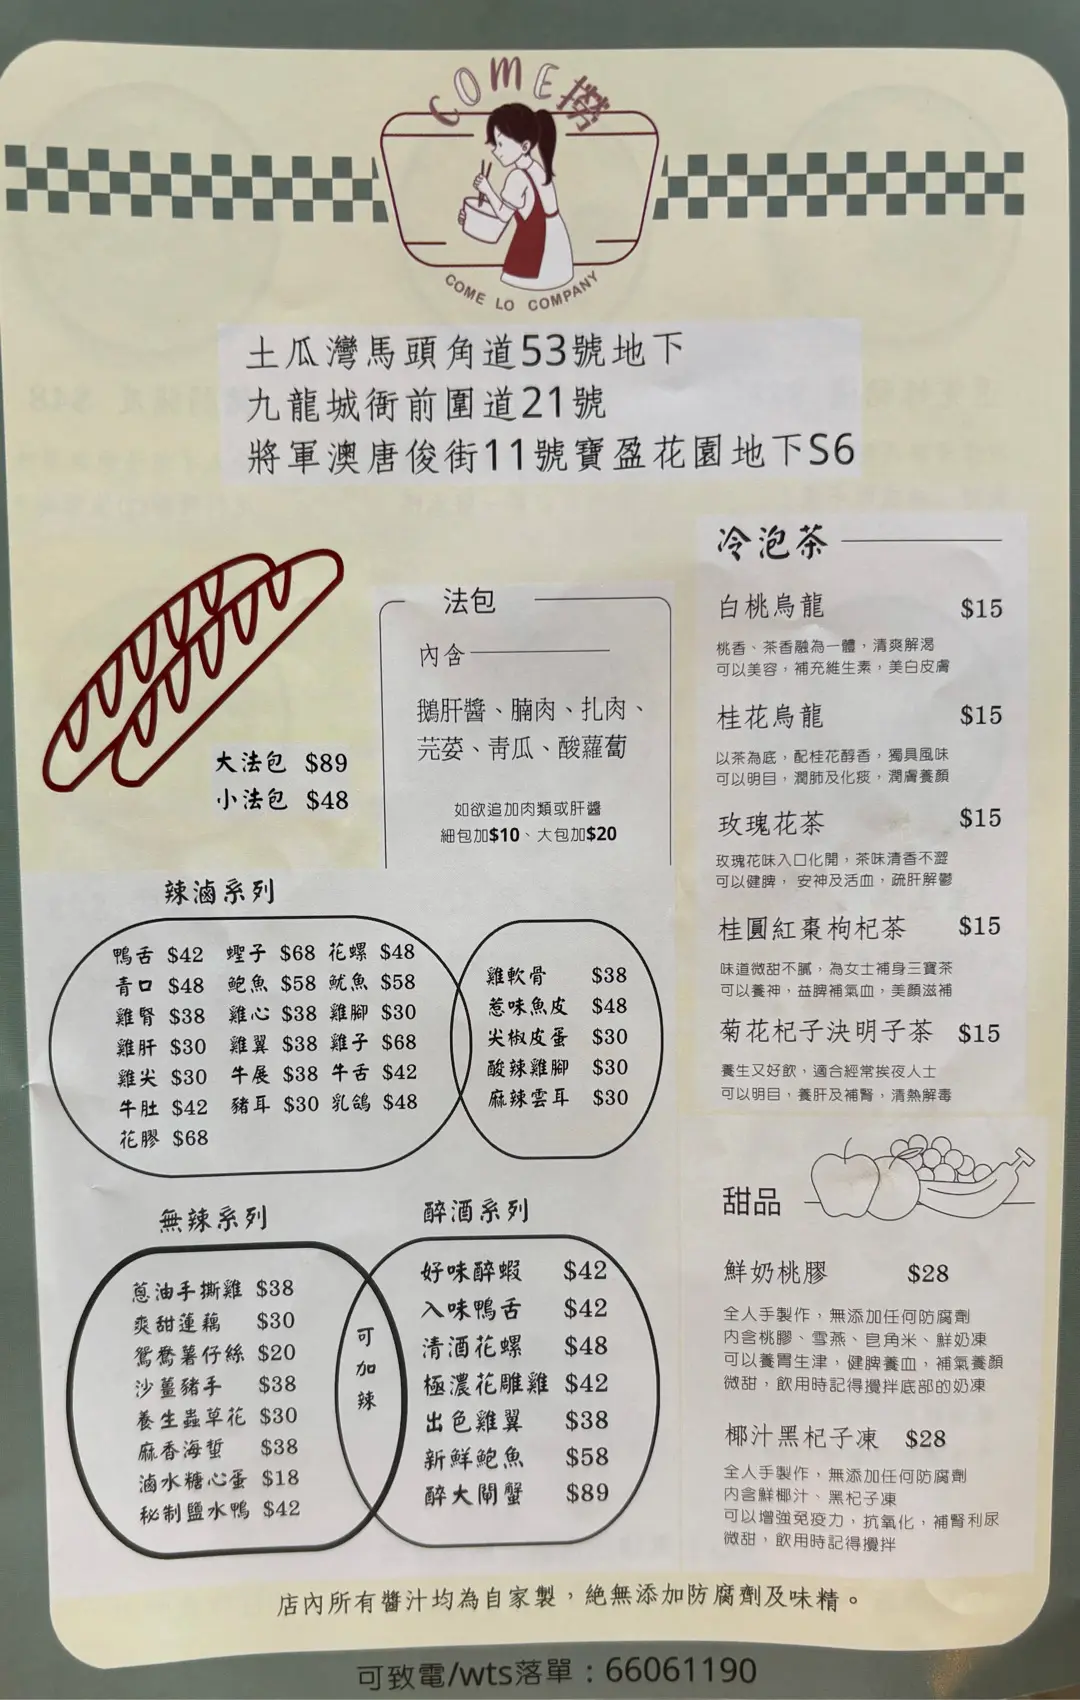 COME撈
COME LO COMPANY
土瓜灣馬頭角道53號地下
九龍城衙前圍道21號
將軍澳唐俊街11號寶盈花園地下S6
大法包 $89
小法包 $48
法包
內含
鵝肝醬、腩肉、扎肉、
芫荽、青瓜、酸蘿蔔
如欲追加肉類或肝醬
細包加$10、大包加$20
辣滷系列
鴨舌 $42 蟶子 $68 花螺 $48
青口 $48 鮑魚 $58 魷魚 $58
雞腎 $38 雞心 $38 雞腳 $30
雞肝 $30 雞翼 $38 雞子 $68
雞尖 $30 牛展 $38 牛舌 $42
牛肚 $42 豬耳 $30 乳鴿 $48
花膠 $68
雞軟骨 $38
惹味魚皮 $48
尖椒皮蛋 $30
酸辣雞腳 $30
麻辣雲耳 $30
無辣系列
蔥油手撕雞 $38
爽甜蓮藕 $30
鴛鴦薯仔絲 $20
沙薑豬手 $38
養生蟲草花 $30
麻香海蜇 $38
滷水糖心蛋 $18
秘制鹽水鴨 $42
可
加
辣
醉酒系列
好味醉蝦 $42
入味鴨舌 $42
清酒花螺 $48
極濃花雕雞 $42
出色雞翼 $38
新鮮鮑魚 $58
醉大閘蟹 $89
冷泡茶
白桃烏龍 $15
桃香、茶香融為一體，清爽解渴
可以美容，補充維生素，美白皮膚
桂花烏龍 $15
以茶為底，配桂花醇香，獨具風味
可以明目，潤肺及化痰，潤膚養顏
玫瑰花茶 $15
玫瑰花味入口化開，茶味清香不澀
可以健脾， 安神及活血，疏肝解鬱
桂圓紅棗枸杞茶 $15
味道微甜不膩，為女士補身三寶茶
可以養神，益脾補氣血，美顏滋補
菊花杞子決明子茶 $15
養生又好飲，適合經常挨夜人士
可以明目，養肝及補腎，清熱解毒
甜品
鮮奶桃膠 $28
全人手製作，無添加任何防腐劑
內含桃膠、雪燕、皂角米、鮮奶凍
可以養胃生津，健脾養血，補氣養顏
微甜，飲用時記得攪拌底部的奶凍
椰汁黑杞子凍 $28
全人手製作，無添加任何防腐劑
內含鮮椰汁、黑杞子凍
可以增強免疫力，抗氧化，補腎利尿
微甜，飲用時記得攪拌
店內所有醬汁均為自家製，絕無添加防腐劑及味精。
可致電/wts落單：66061190